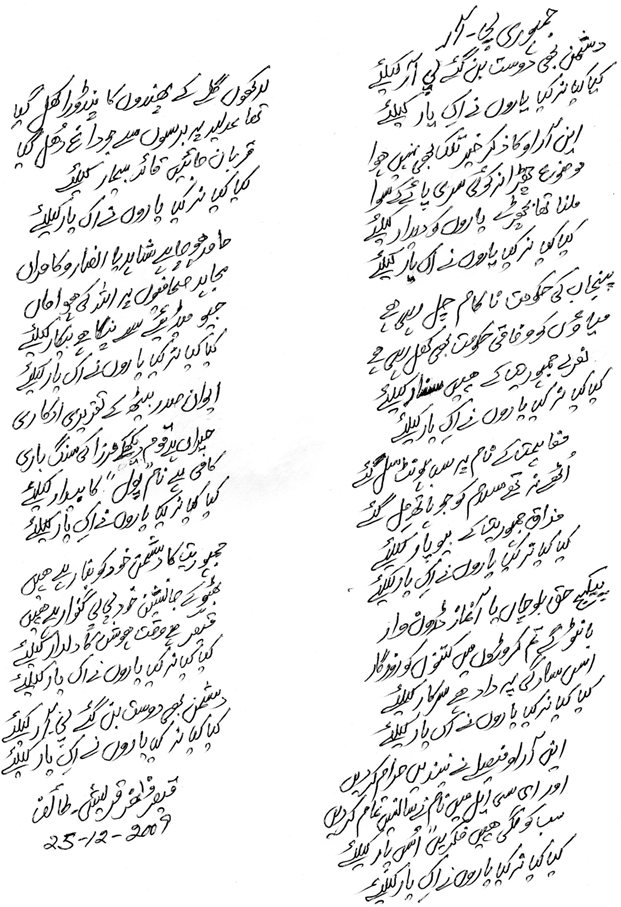 جمہوری پی-آر
دشمن بھی دوست بن گئے پی آر کیلئے
کیا کیا نہ کیا یاروں نے اِک یار کیلئے
این آر او کا ذکر خیر تلک بھی نہیں ہوا
موضوع چھڑا نہ کوئی سری پائے کے سوا
ملنا تھا بچھڑے یاروں کو دیدار کیلئے
کیا کیا نہ کیا یاروں نے اِک یار کیلئے
پنجاب کی حکومت ناکام چل رہی ہے
میاؤں کو وفاقی حکومت بھی کھل رہی ہے
نعرے جمہوریت کے ہیں کیلئے
کیا کیا نہ کیا یاروں نے اِک یار کیلئے
مفاہمت کے نام پہ سب ہونٹ سل گئے
اُٹھے نہ تھے سلام کو جو ہاتھ مل گئے
مذاق جمہوریت کے بیوپار کیلئے
کیا کیا نہ کیا یاروں نے اِک یار کیلئے
پیکیج حق بلوچاں یا آغاز ڈرون وار
بانٹو گے تم کروڑوں میں کتنوں کو روزگار
اس سادگی پہ داد ہے سرکار کیلئے
کیا کیا نہ کیا یاروں نے اِک یار کیلئے
این آر او فیصلے نے نیندیں حرام کر دیں
اور ای سی ایل میں نام نے سانسیں تمام کر دیں
سب کو لگی ہیں فکریں اُس یار کیلئے
کیا کیا نہ کیا یاروں نے اِک یار کیلئے
لاکھوں گلے کے پھندوں کا پنڈورا کھل گیا
تھا عدلیہ پہ برسوں سے جو داغ دُھل گیا
قربان جائیں قائد بیمار کیلئے
کیا کیا نہ کیا یاروں نے اِک یار کیلئے
حامد ہو چاہے شاہد یا انصار و کامران
مجاہد صحافیوں پہ اللہ کی ہو اماں
کیلئے
کیا کیا نہ کیا یاروں نے اِک یار کیلئے
ایوان صدر بیٹھ کے تقریری اداکاری
حیراں ہے قوم دیکھ کے مرزا کی
کافی ہے نام "پول" کا بیدار کیلئے
کیا کیا نہ کیا یاروں نے اِک یار کیلئے
جمہوریت کا دشمن خود کو بنا رہے ہیں
بھٹو کے جانشین خود پی پی گنوا رہے ہیں
قیصر ہے وقت ہوش کا دلدار کیلئے
کیا کیا نہ کیا یاروں نے اِک یار کیلئے
دشمن بھی دوست بن گئے پی آر کیلئے
کیا کیا نہ کیا یاروں نے اِک یار کیلئے
قیصر ظفر قریشی - طائف
25-12-2009